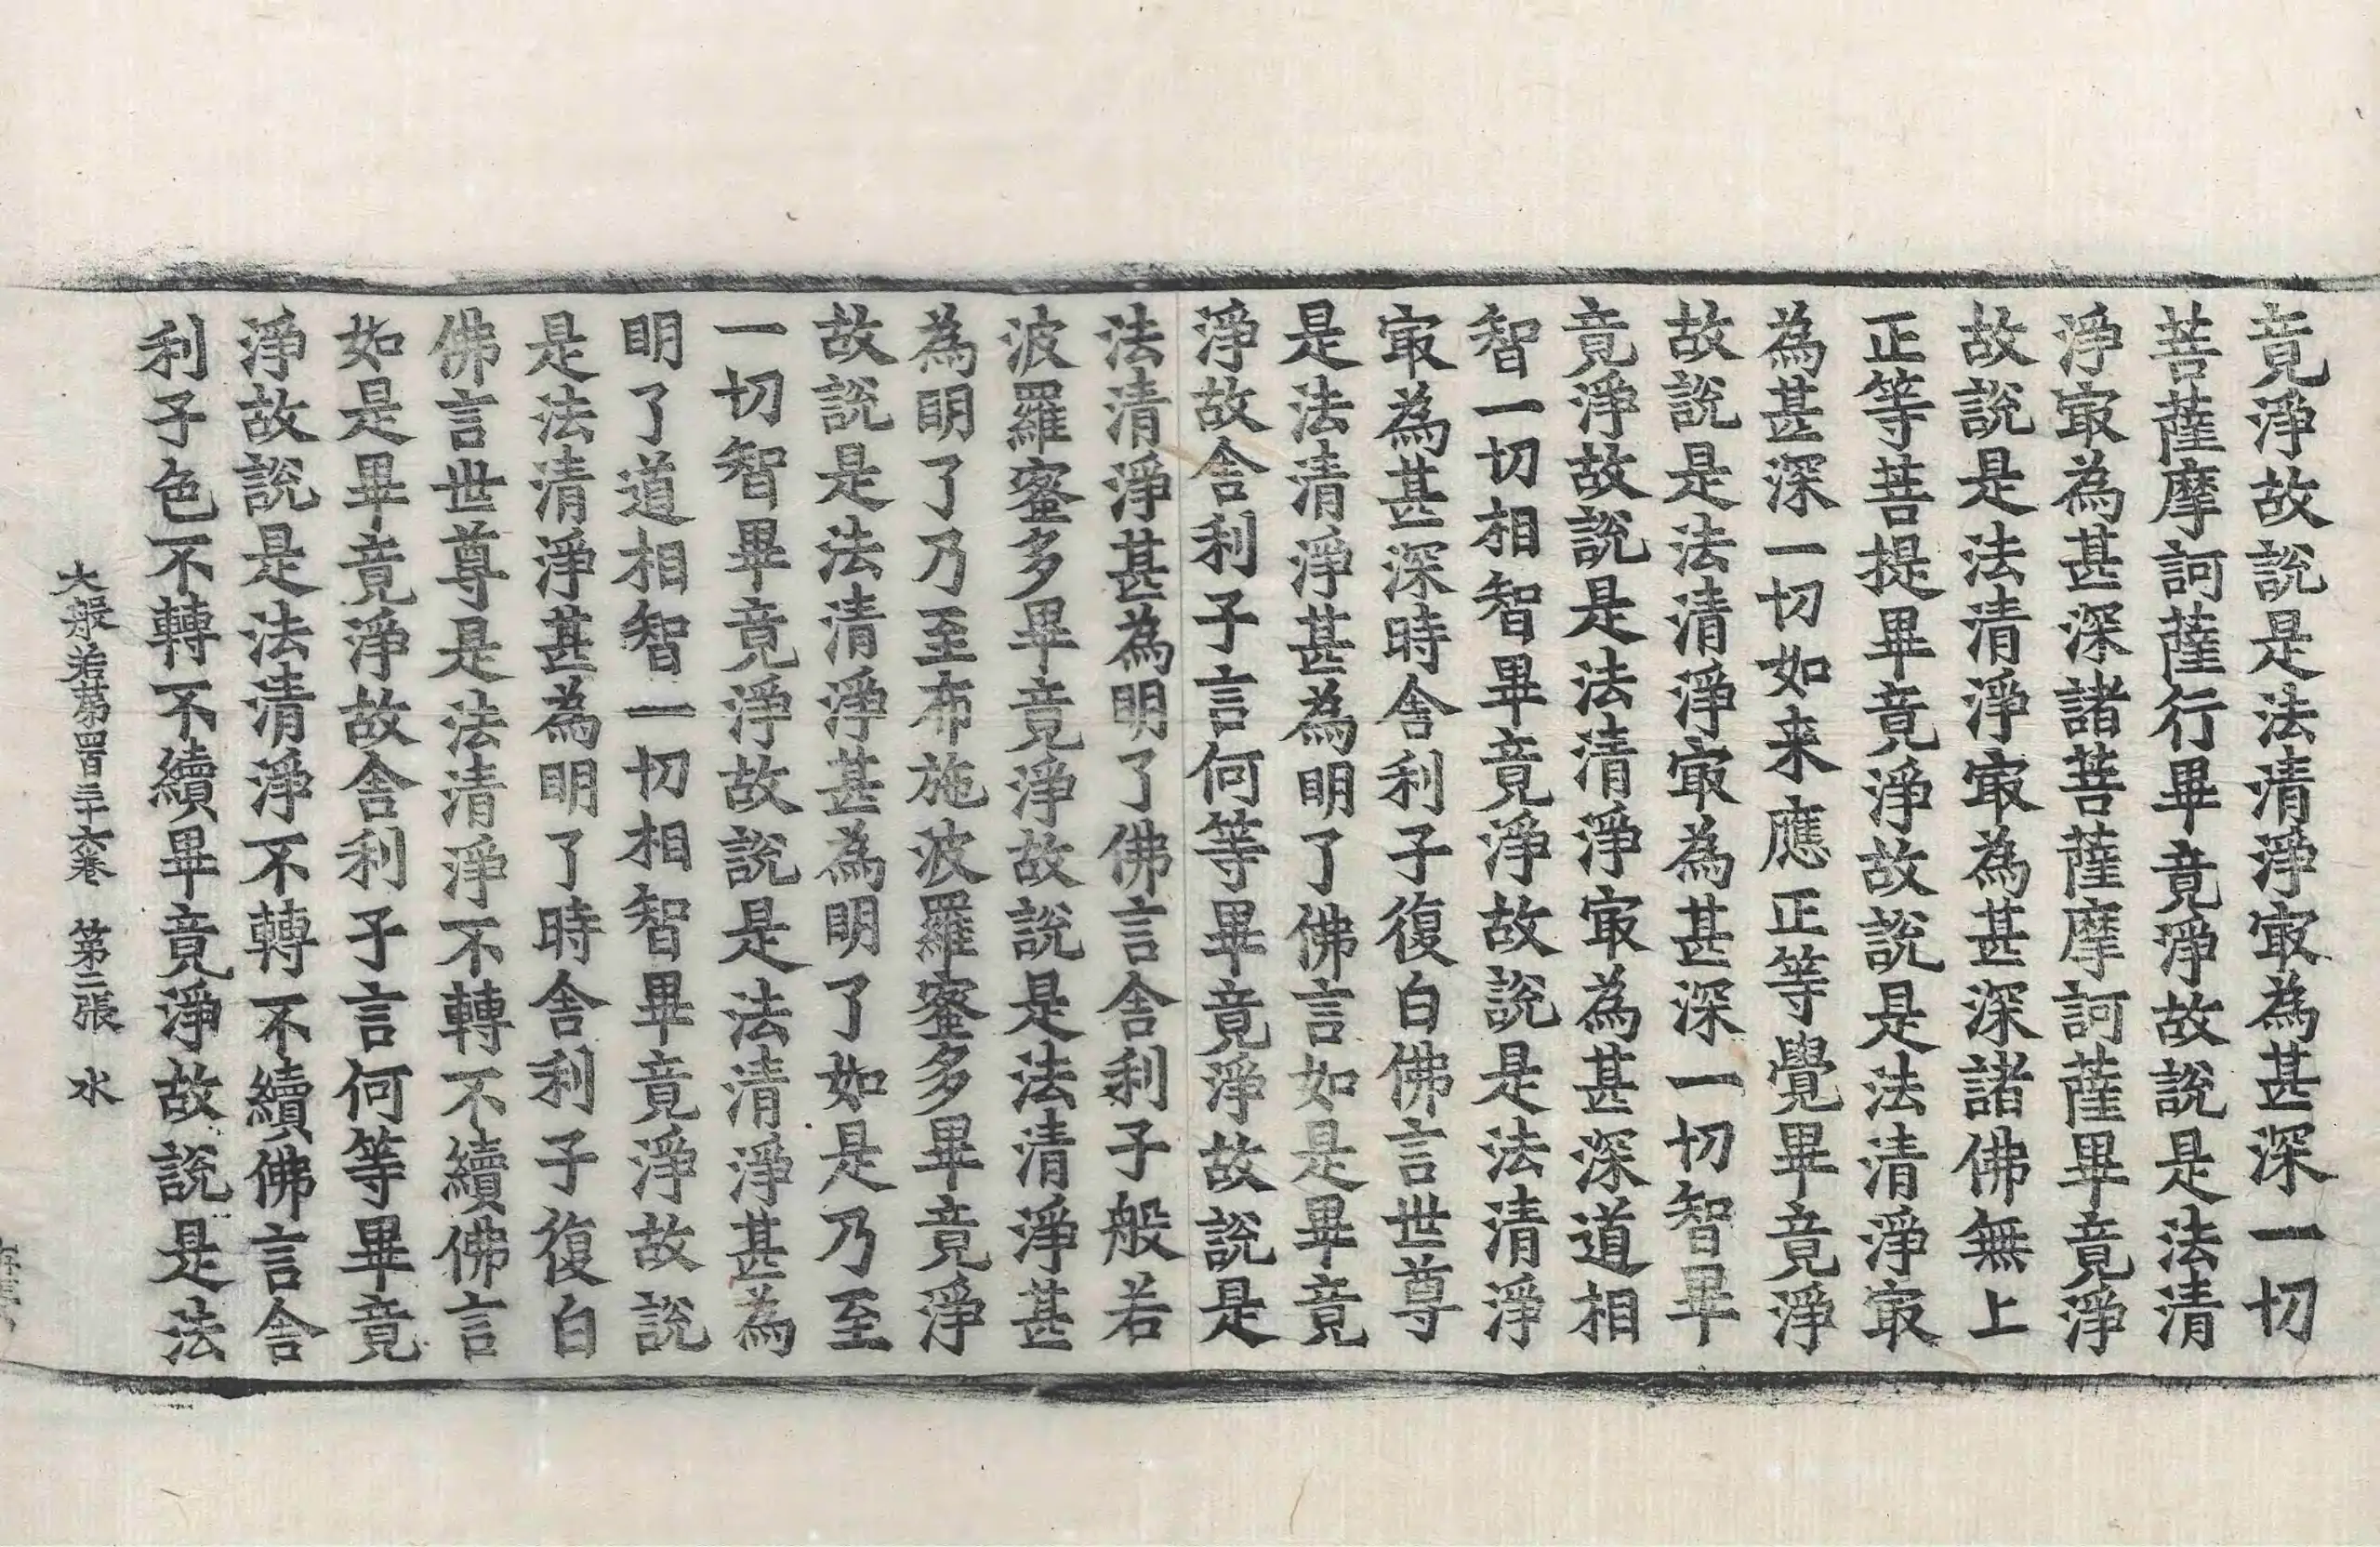 竟淨故說是法清淨㝡為甚深一切
菩薩摩訶薩行畢竟淨故說是法清
淨㝡為甚深諸菩薩摩訶薩畢竟淨
故說是法清淨㝡為甚深諸佛無上
正等菩提畢竟淨故說是法清淨㝡
為甚深一切如来應正等覺畢竟淨
故說是法清淨㝡為甚深一切智畢
竟淨故說是法清淨㝡為甚深道相
智一切相智畢竟淨故說是法清淨
㝡為甚深時舍利子復白佛言世尊
是法清淨甚為明了佛言如是畢竟
淨故舍利子言何等畢竟淨故說是
法清淨甚為明了佛言舍利子般若
波羅蜜多畢竟淨故說是法清淨甚
為明了乃至布施波羅蜜多畢竟淨
故說是法清淨甚為明了如是乃至
一切智畢竟淨故說是法清淨甚為
明了道相智一切相智畢竟淨故說
是法清淨甚為明了時舍利子復白
佛言世尊是法清淨不轉不續佛言
如是畢竟淨故舍利子言何等畢竟
淨故說是法清淨不轉不續佛言舍
利子色不轉不續畢竟淨故說是法
大般若第四百三十六卷 第三張 水